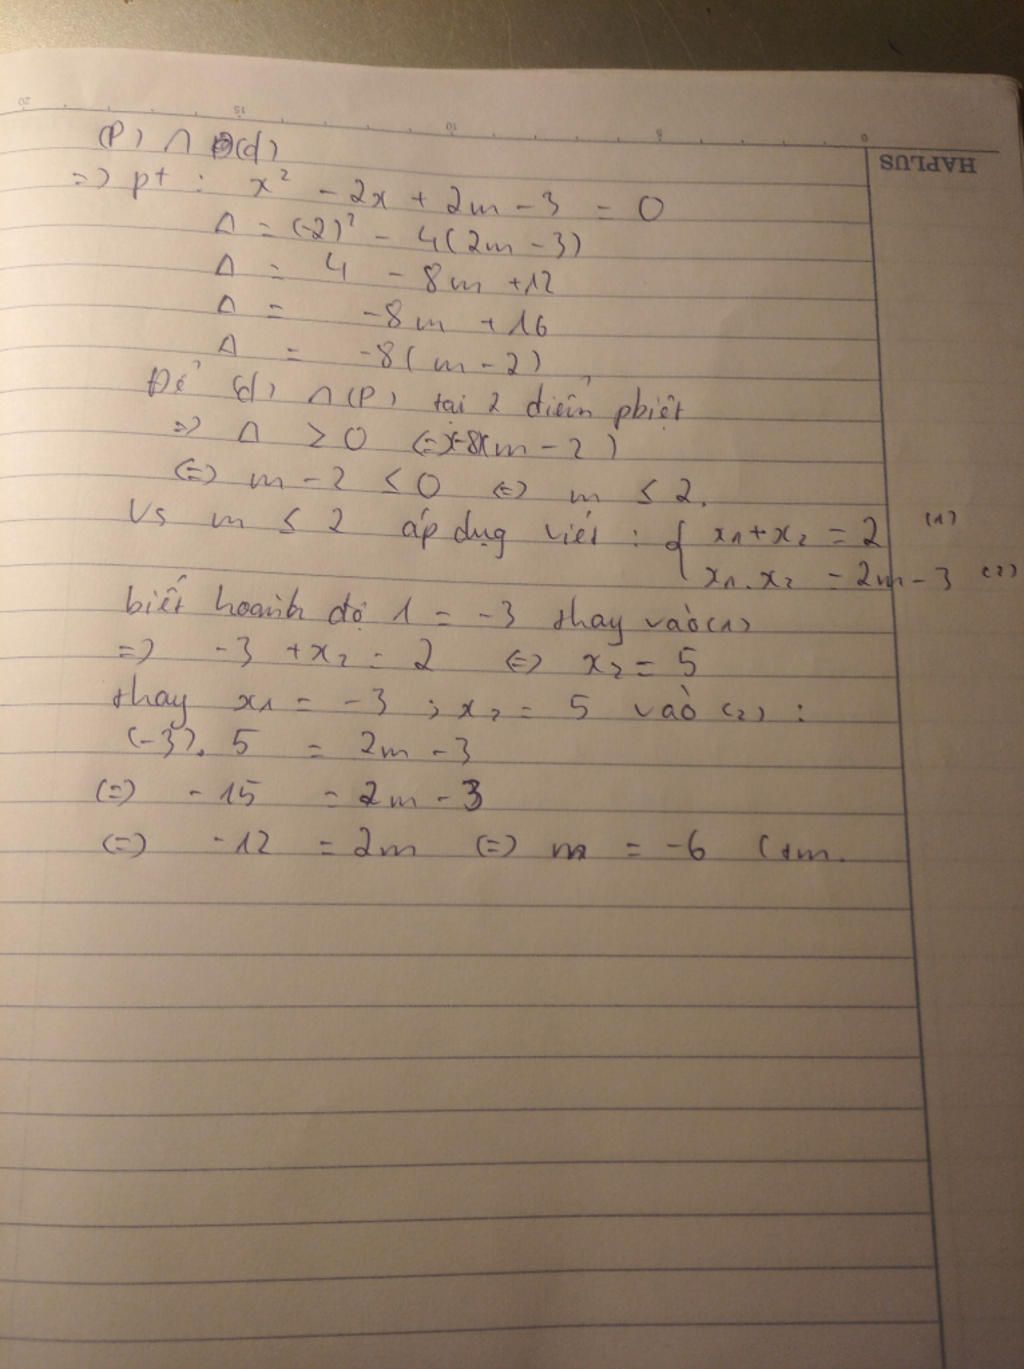 20 15 10 5 0
HAPLUS
(P) ∩ (d)
=> pt : x² - 2x + 2m - 3 = 0
Δ = (-2)² - 4(2m - 3)
Δ = 4 - 8m + 12
Δ = -8m + 16
Δ = -8(m - 2)
Để (d) ∩ (P) tại 2 điểm pbiệt
=> Δ > 0 (=> -8(m - 2)
(=) m - 2 ≤ 0 (=) m ≤ 2.
Vs m ≤ 2 áp dụg viét : { x₁ + x₂ = 2 (1)
x₁. x₂ = 2m - 3 (2)
biết hoành độ 1 = -3 thay vào (1)
=> -3 + x₂ = 2 (=) x₂ = 5
thay x₁ = -3 ; x₂ = 5 vào (2) :
(-3). 5 = 2m - 3
(=) -15 = 2m - 3
(=) -12 = 2m (=) m = -6 (tm.